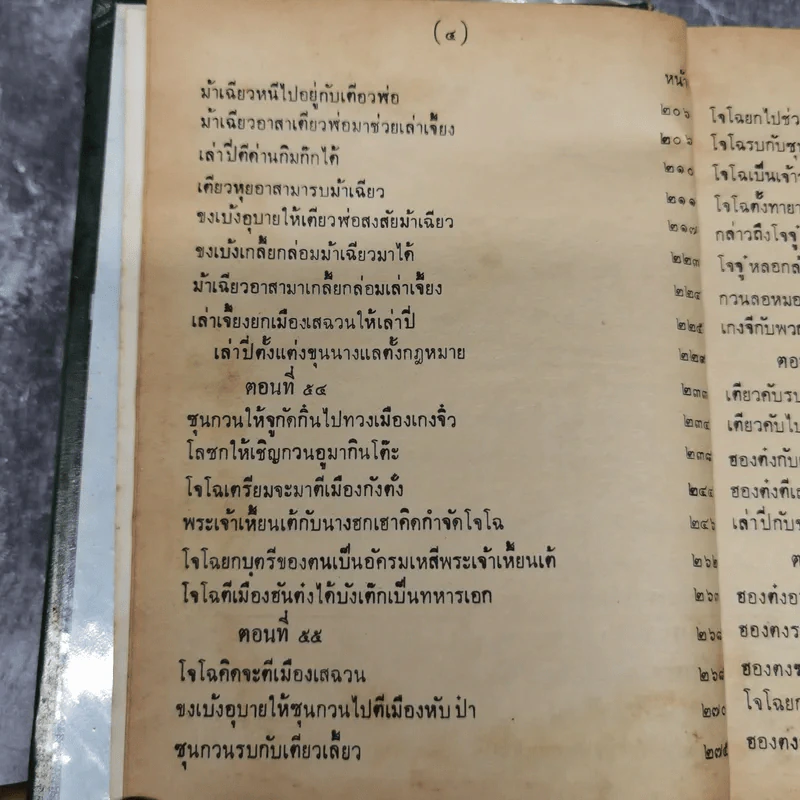 (๔)
หน้า
ม้าเฉียวหนีไปอยู่กับเตียวฬ่อ ๒๐๖
ม้าเฉียวอาสาเตียวฬ่อมาช่วยเล่าเจี้ยง ๒๐๖
เล่าปี่ตีด่านกิมก๊กได้ ๒๑๐
เตียวหุยอาสามารบม้าเฉียว ๒๑๑
ขงเบ้งอุบายให้เตียวฬ่อสงสัยม้าเฉียว ๒๑๗
ขงเบ้งเกลี้ยกล่อมม้าเฉียวมาได้ ๒๒๓
ม้าเฉียวอาสามาเกลี้ยกล่อมเล่าเจี้ยง ๒๒๔
เล่าเจี้ยงยกเมืองเสฉวนให้เล่าปี่ ๒๒๕
เล่าปี่ตั้งแต่งขุนนางแลตั้งกฎหมาย ๒๒๙
ตอนที่ ๕๔ ๒๓๓
ซุนกวนให้จูกัดกิ๋นไปทวงเมืองเกงจิ๋ว ๒๓๔
โลซกให้เชิญกวนอูมากินโต๊ะ ๒๓๘
โจโฉเตรียมจะมาตีเมืองกังตั๋ง ๒๔๔
พระเจ้าเหี้ยนเต้กับนางฮกเฮาคิดกำจัดโจโฉ ๒๔๖
โจโฉยกบุตรีของตนเป็นอัครมเหสีพระเจ้าเหี้ยนเต้ ๒๖๒
โจโฉตีเมืองฮันต๋งได้บังเต๊กเป็นทหารเอก ๒๖๓
ตอนที่ ๕๕ ๒๖๘
โจโฉคิดจะตีเมืองเสฉวน ๒๖๘
ขงเบ้งอุบายให้ซุนกวนไปตีเมืองหับป๋า ๒๗๐
ซุนกวนรบกับเตียวเลี้ยว ๒๗๕
โจโฉยกไปช่ว
โจโฉรบกับซุน
โจโฉเป็นเจ้า
โจโฉตั้งทายา
กล่าวถึงโจจู๋
โจจู๋หลอกล
กวนลอหมอ
เกงจีกับพวก
ตอ
เตียวคับรบ
เตียวคับไป
ฮองต๋งกับ
ฮองต๋งตีเ
เล่าปี่กับข
ต
ฮองต๋งอา
ฮองตงร
ฮองตงช
โจโฉยก
ฮองตง